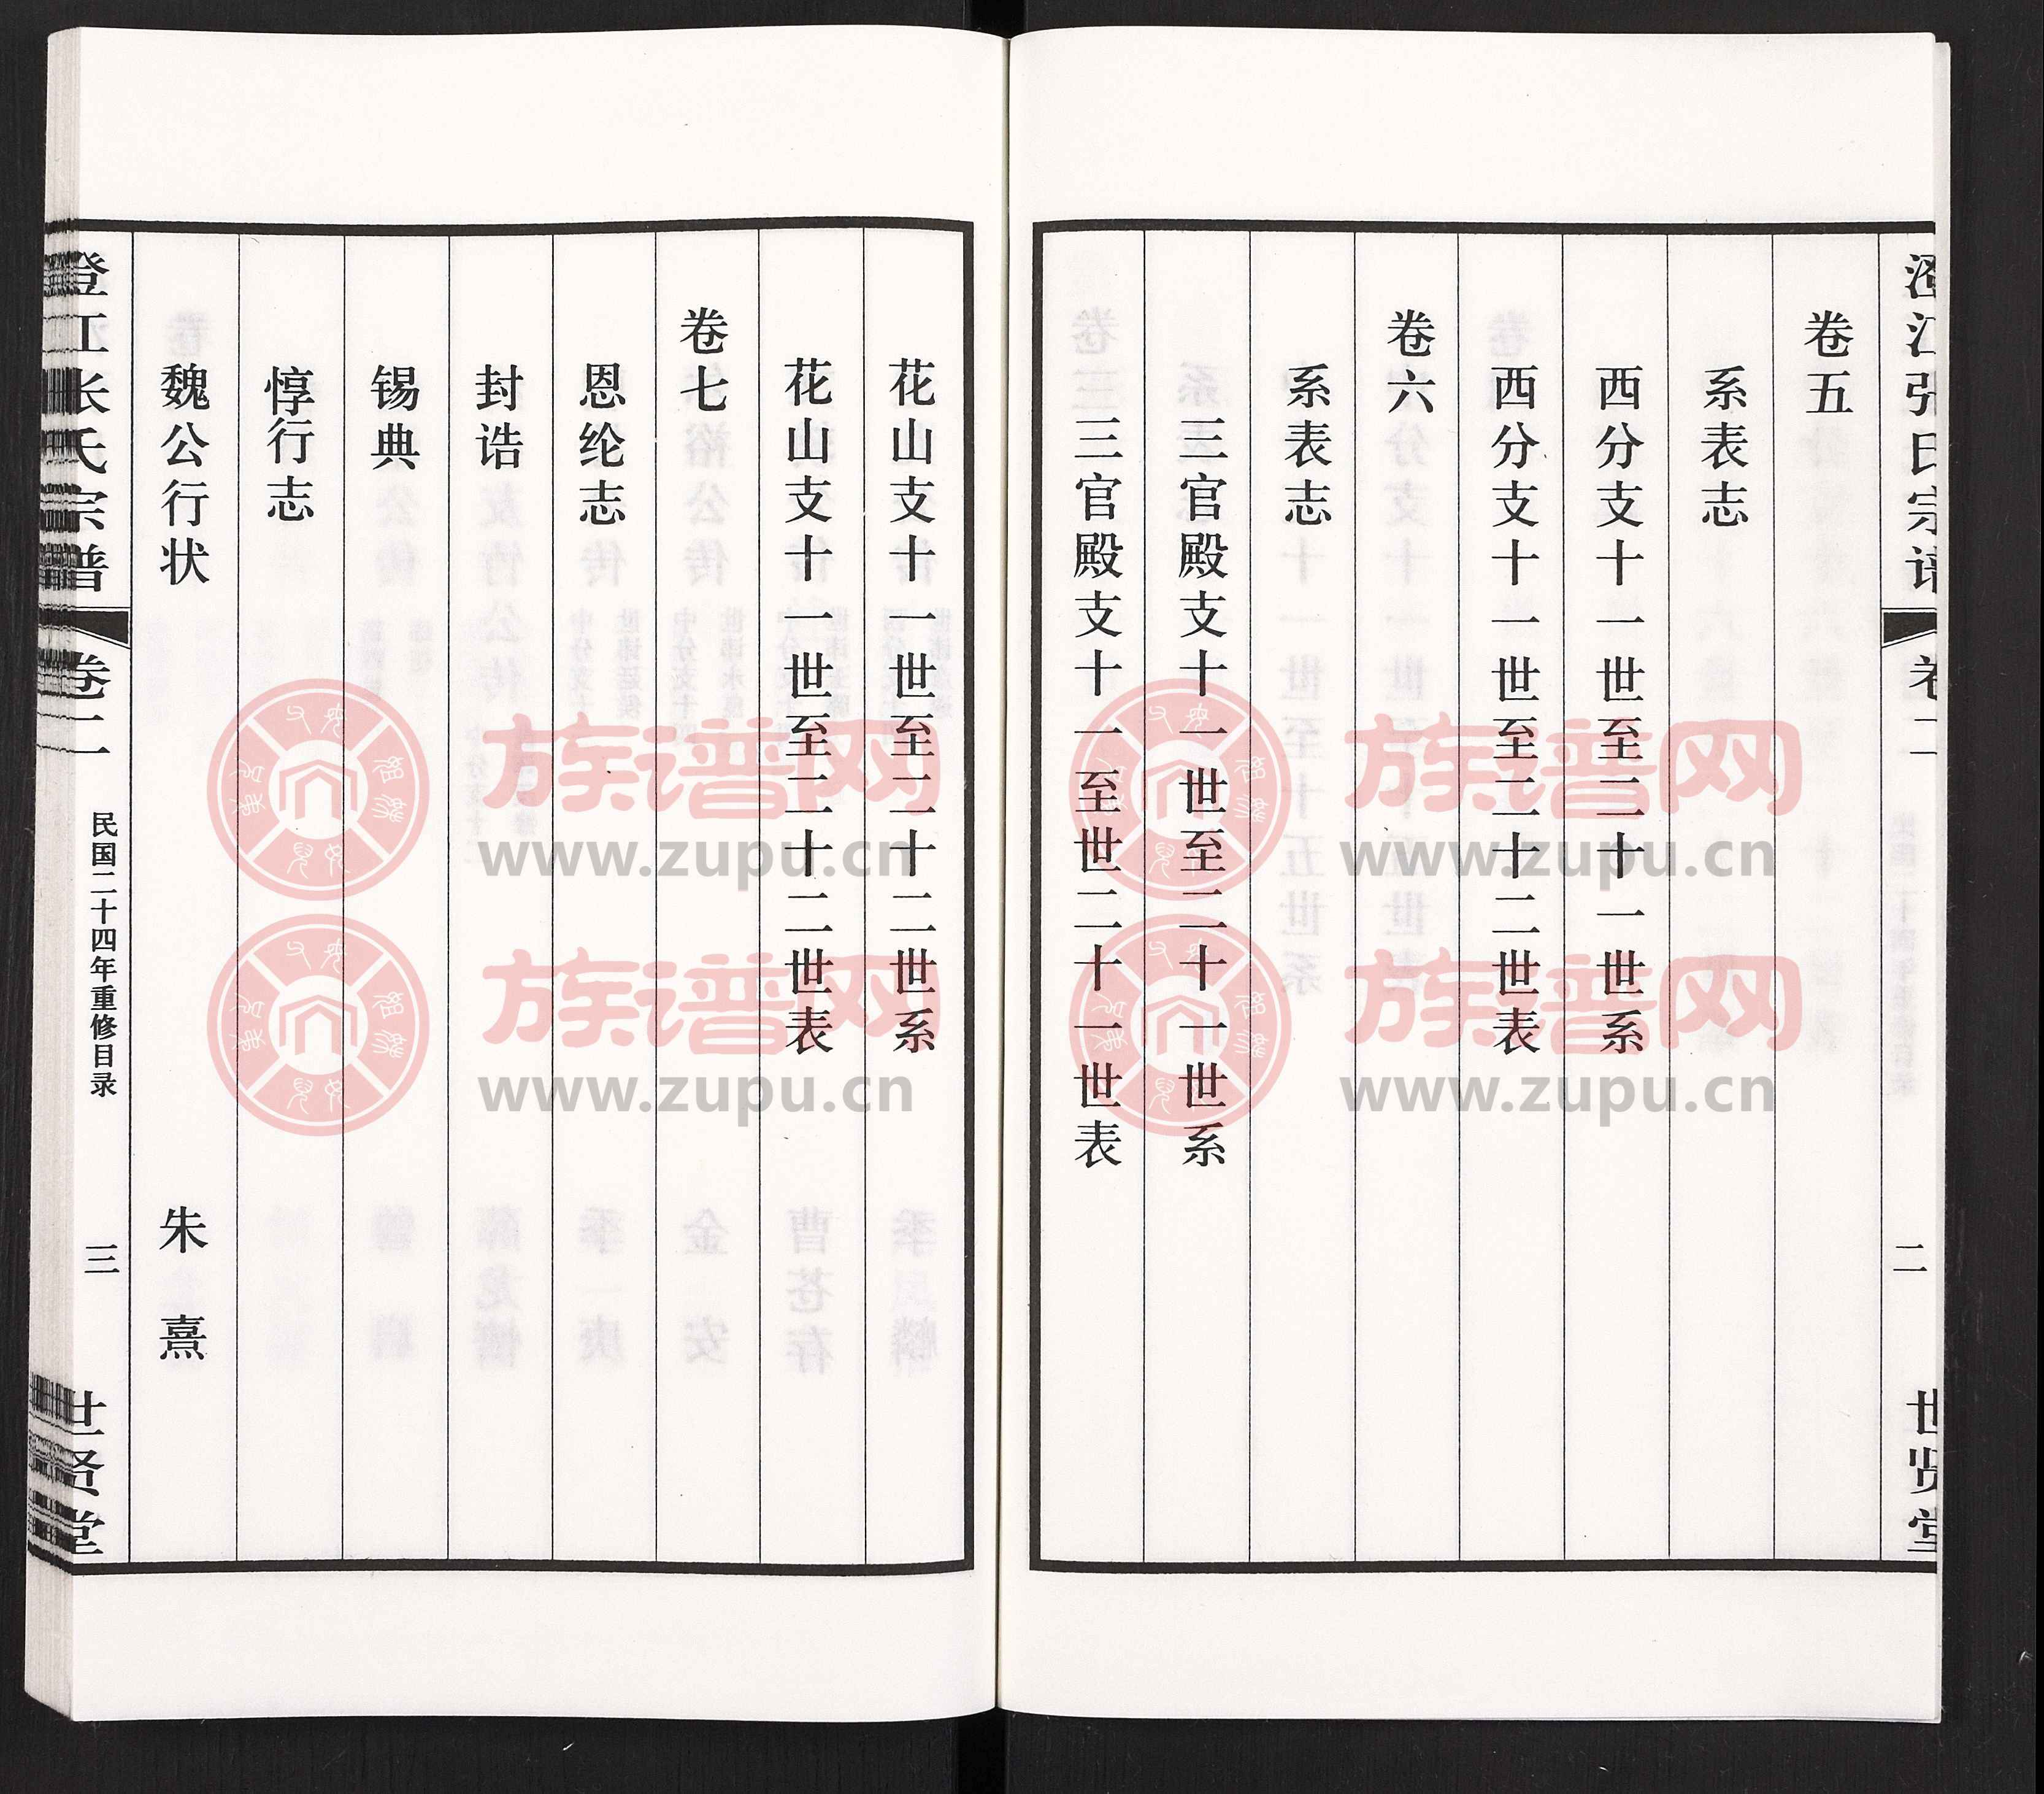 澄江张氏宗谱 卷二 二 世贤堂
卷五
系表志
西分支十一世至二十一世系
西分支十一世至二十二世表
卷六
系表志
三官殿支十一世至二十一世系
三官殿支十一至世二十一世表
花山支十一世至二十二世系
花山支十一世至二十二世表
卷七
恩纶志
封诰
锡典
惇行志
魏公行状 朱熹
澄江张氏宗谱 卷二 民国二十四年重修目录 三 世贤堂
族谱网
www.zupu.cn
族谱网
www.zupu.cn
族谱网
www.zupu.cn
族谱网
www.zupu.cn